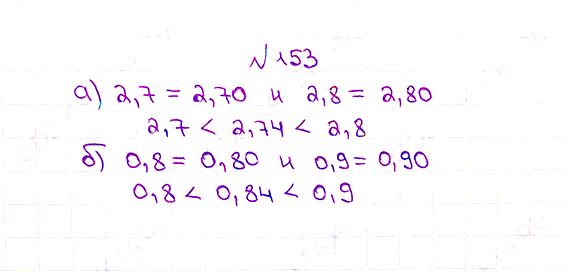 №153
а) 2,7 = 2,70 и 2,8 = 2,80
2,7 < 2,74 < 2,8
б) 0,8 = 0,80 и 0,9 = 0,90
0,8 < 0,84 < 0,9